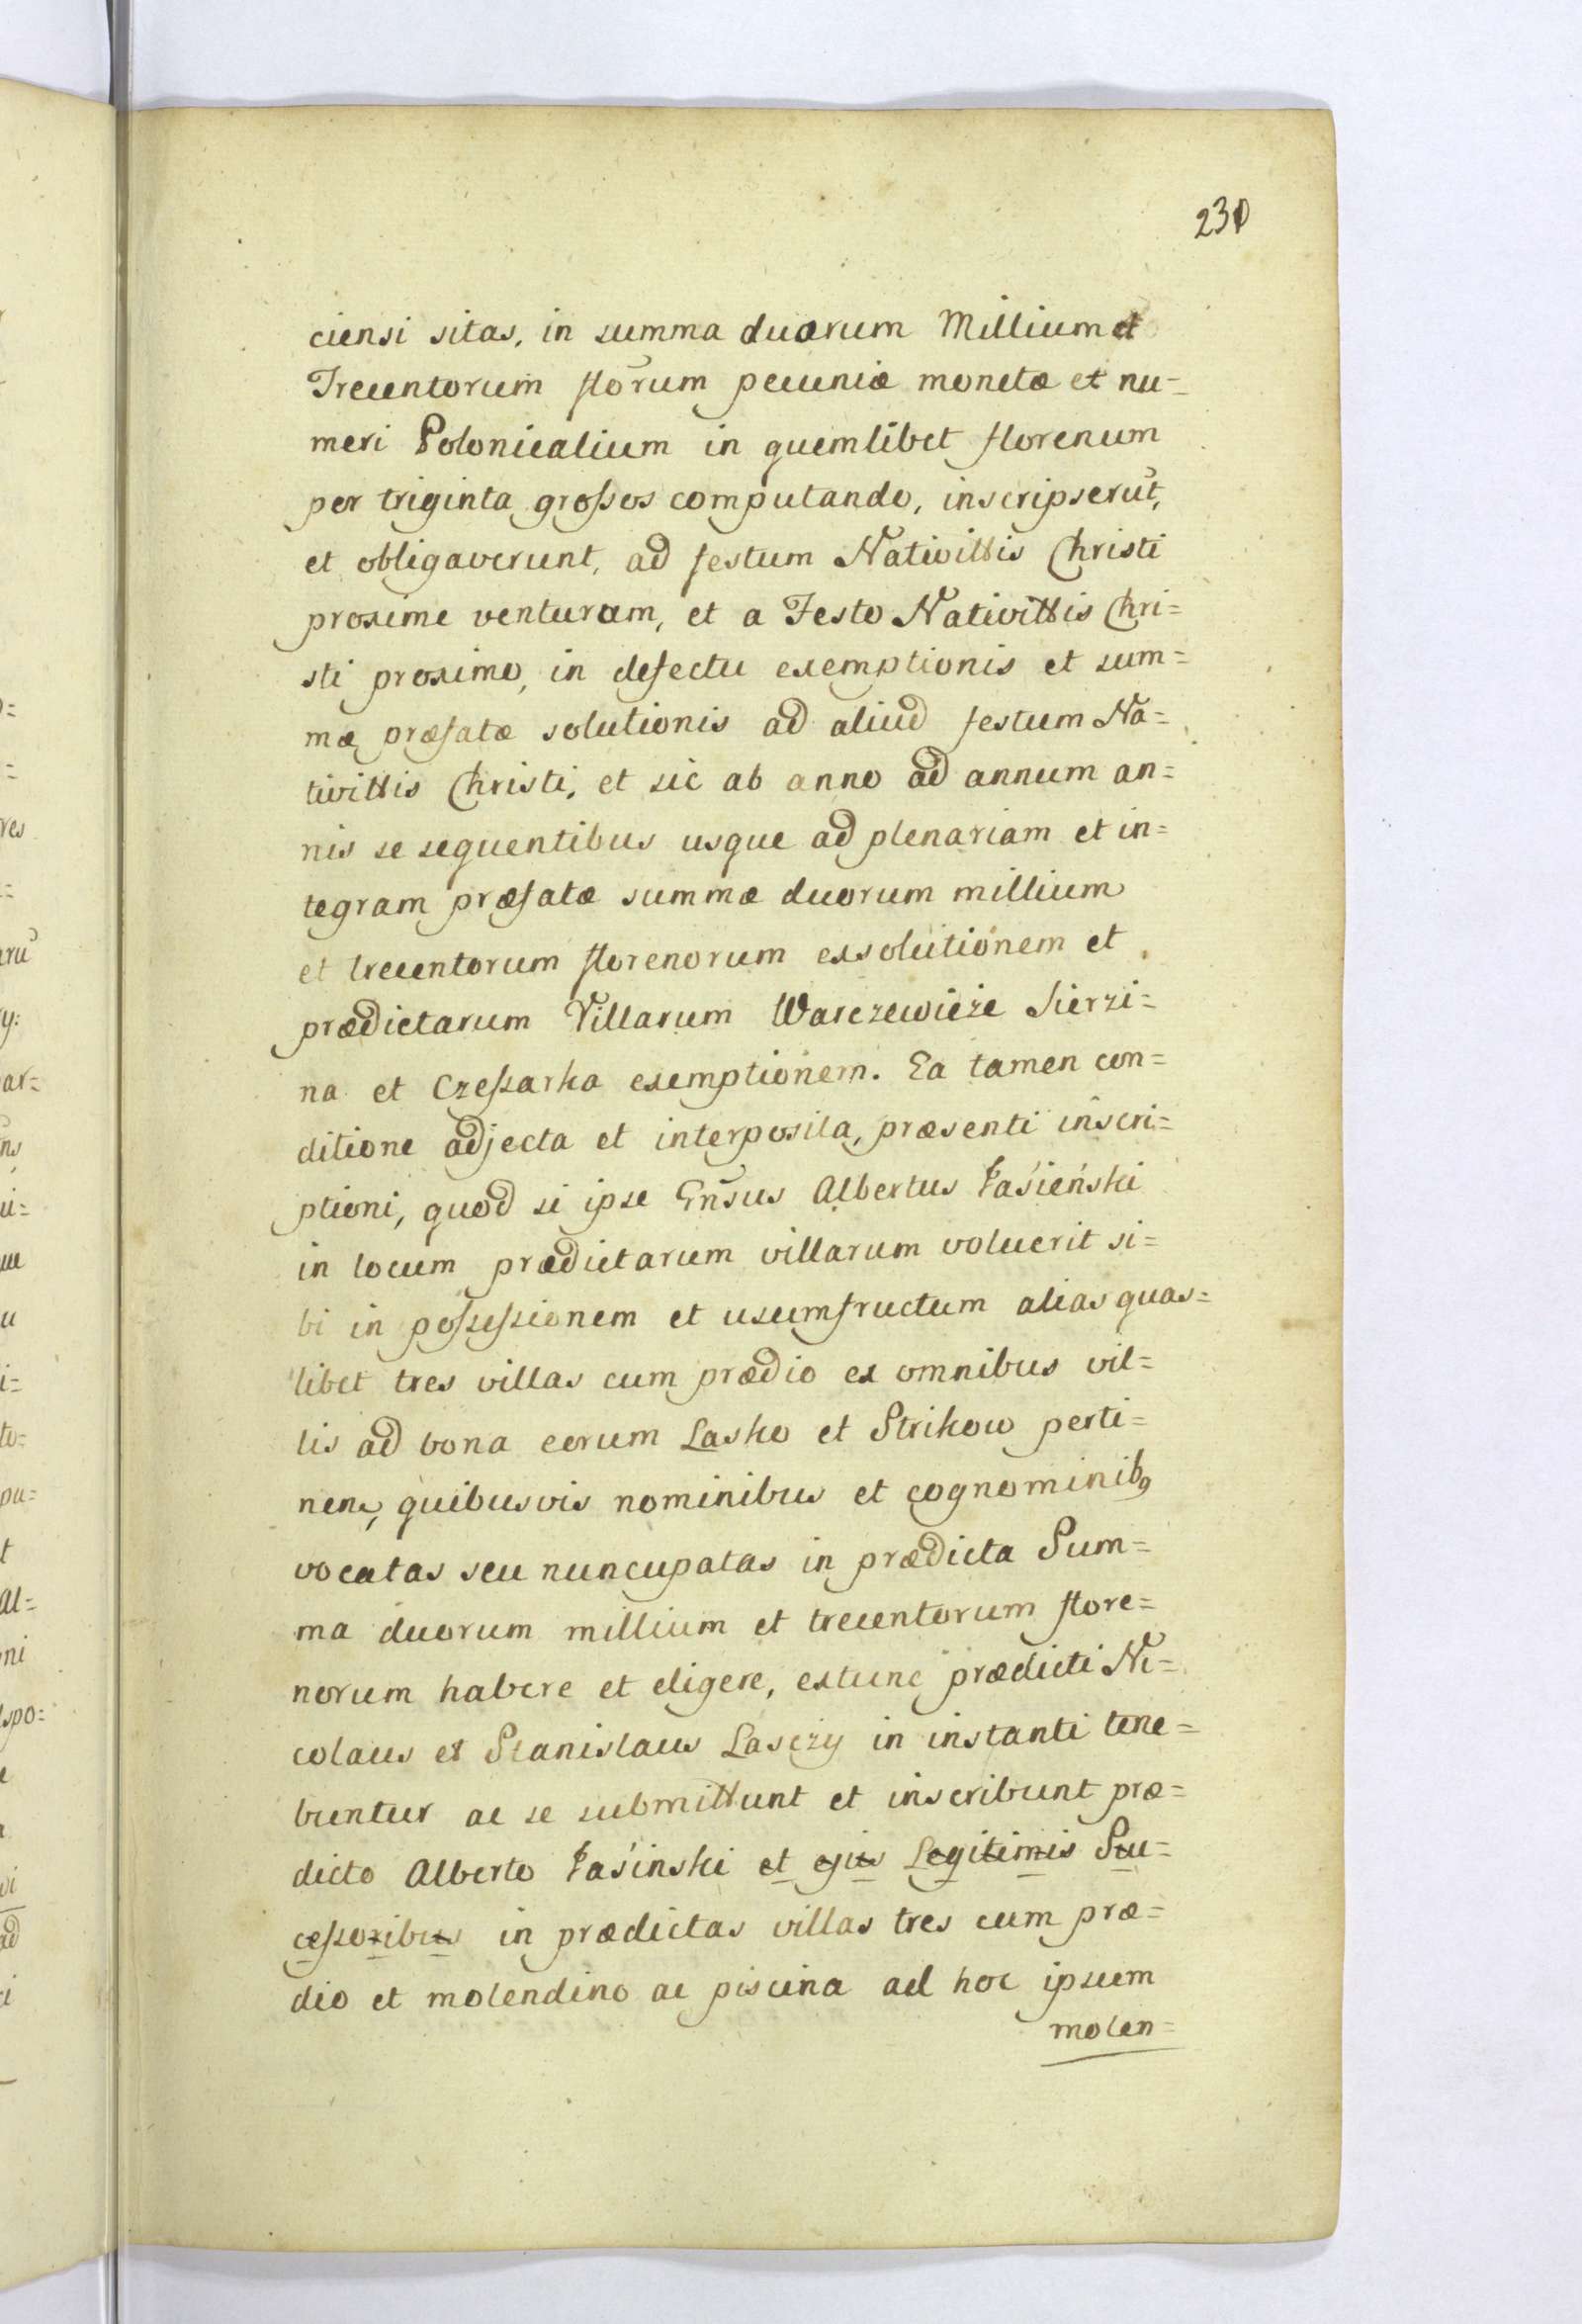 230
ciensi sitas, in summa duorum Millium et
Trecentorum flōrum pecuniæ monetæ et nu=
meri Polonicalium in quemlibet florenum
per triginta grossos computando, inscripserūt,
et obligaverunt, ad festum Nativittis Christi
proxime venturam, et a Festo Nativittis Chri=
sti proximo, in defectu exemptionis et sum=
mæ præfatæ solutionis ad aliud festum Na=
tivittis Christi, et sic ab anno ad annum an=
nis se sequentibus usque ad plenariam et in=
tegram præfatæ summæ duorum millium
et trecentorum florenorum exsolutionem et
prædictarum Villarum Warczewieże Sierzi=
na et Czessarka exemptionem. Ea tamen con=
ditione adjecta et interposita, præsenti inscri=
ptioni, quod si ipse Gn̄sus Albertus Jasieński
in locum prædictarum villarum voluerit si=
bi in possessionem et usumfructum alias quas=
libet tres villas cum prædio ex omnibus vil=
lis ad bona eorum Lasko et Strikow perti=
nen, quibusvis nominibus et cognominibꝰ
vocatas seu nuncupatas in prædicta Sum=
ma duorum millium et trecentorum flore=
norum habere et eligere, extunc prædicti Ni=
colaus et Stanislaus Lasczy in instanti tene=
buntur ac se submittunt et inscribunt præ=
dicto Alberto Jasinski et ejus Legitimis Su=
cessoribus in prædictas villas tres cum præ=
dio et molendino ac piscina ad hoc ipsum
molen=